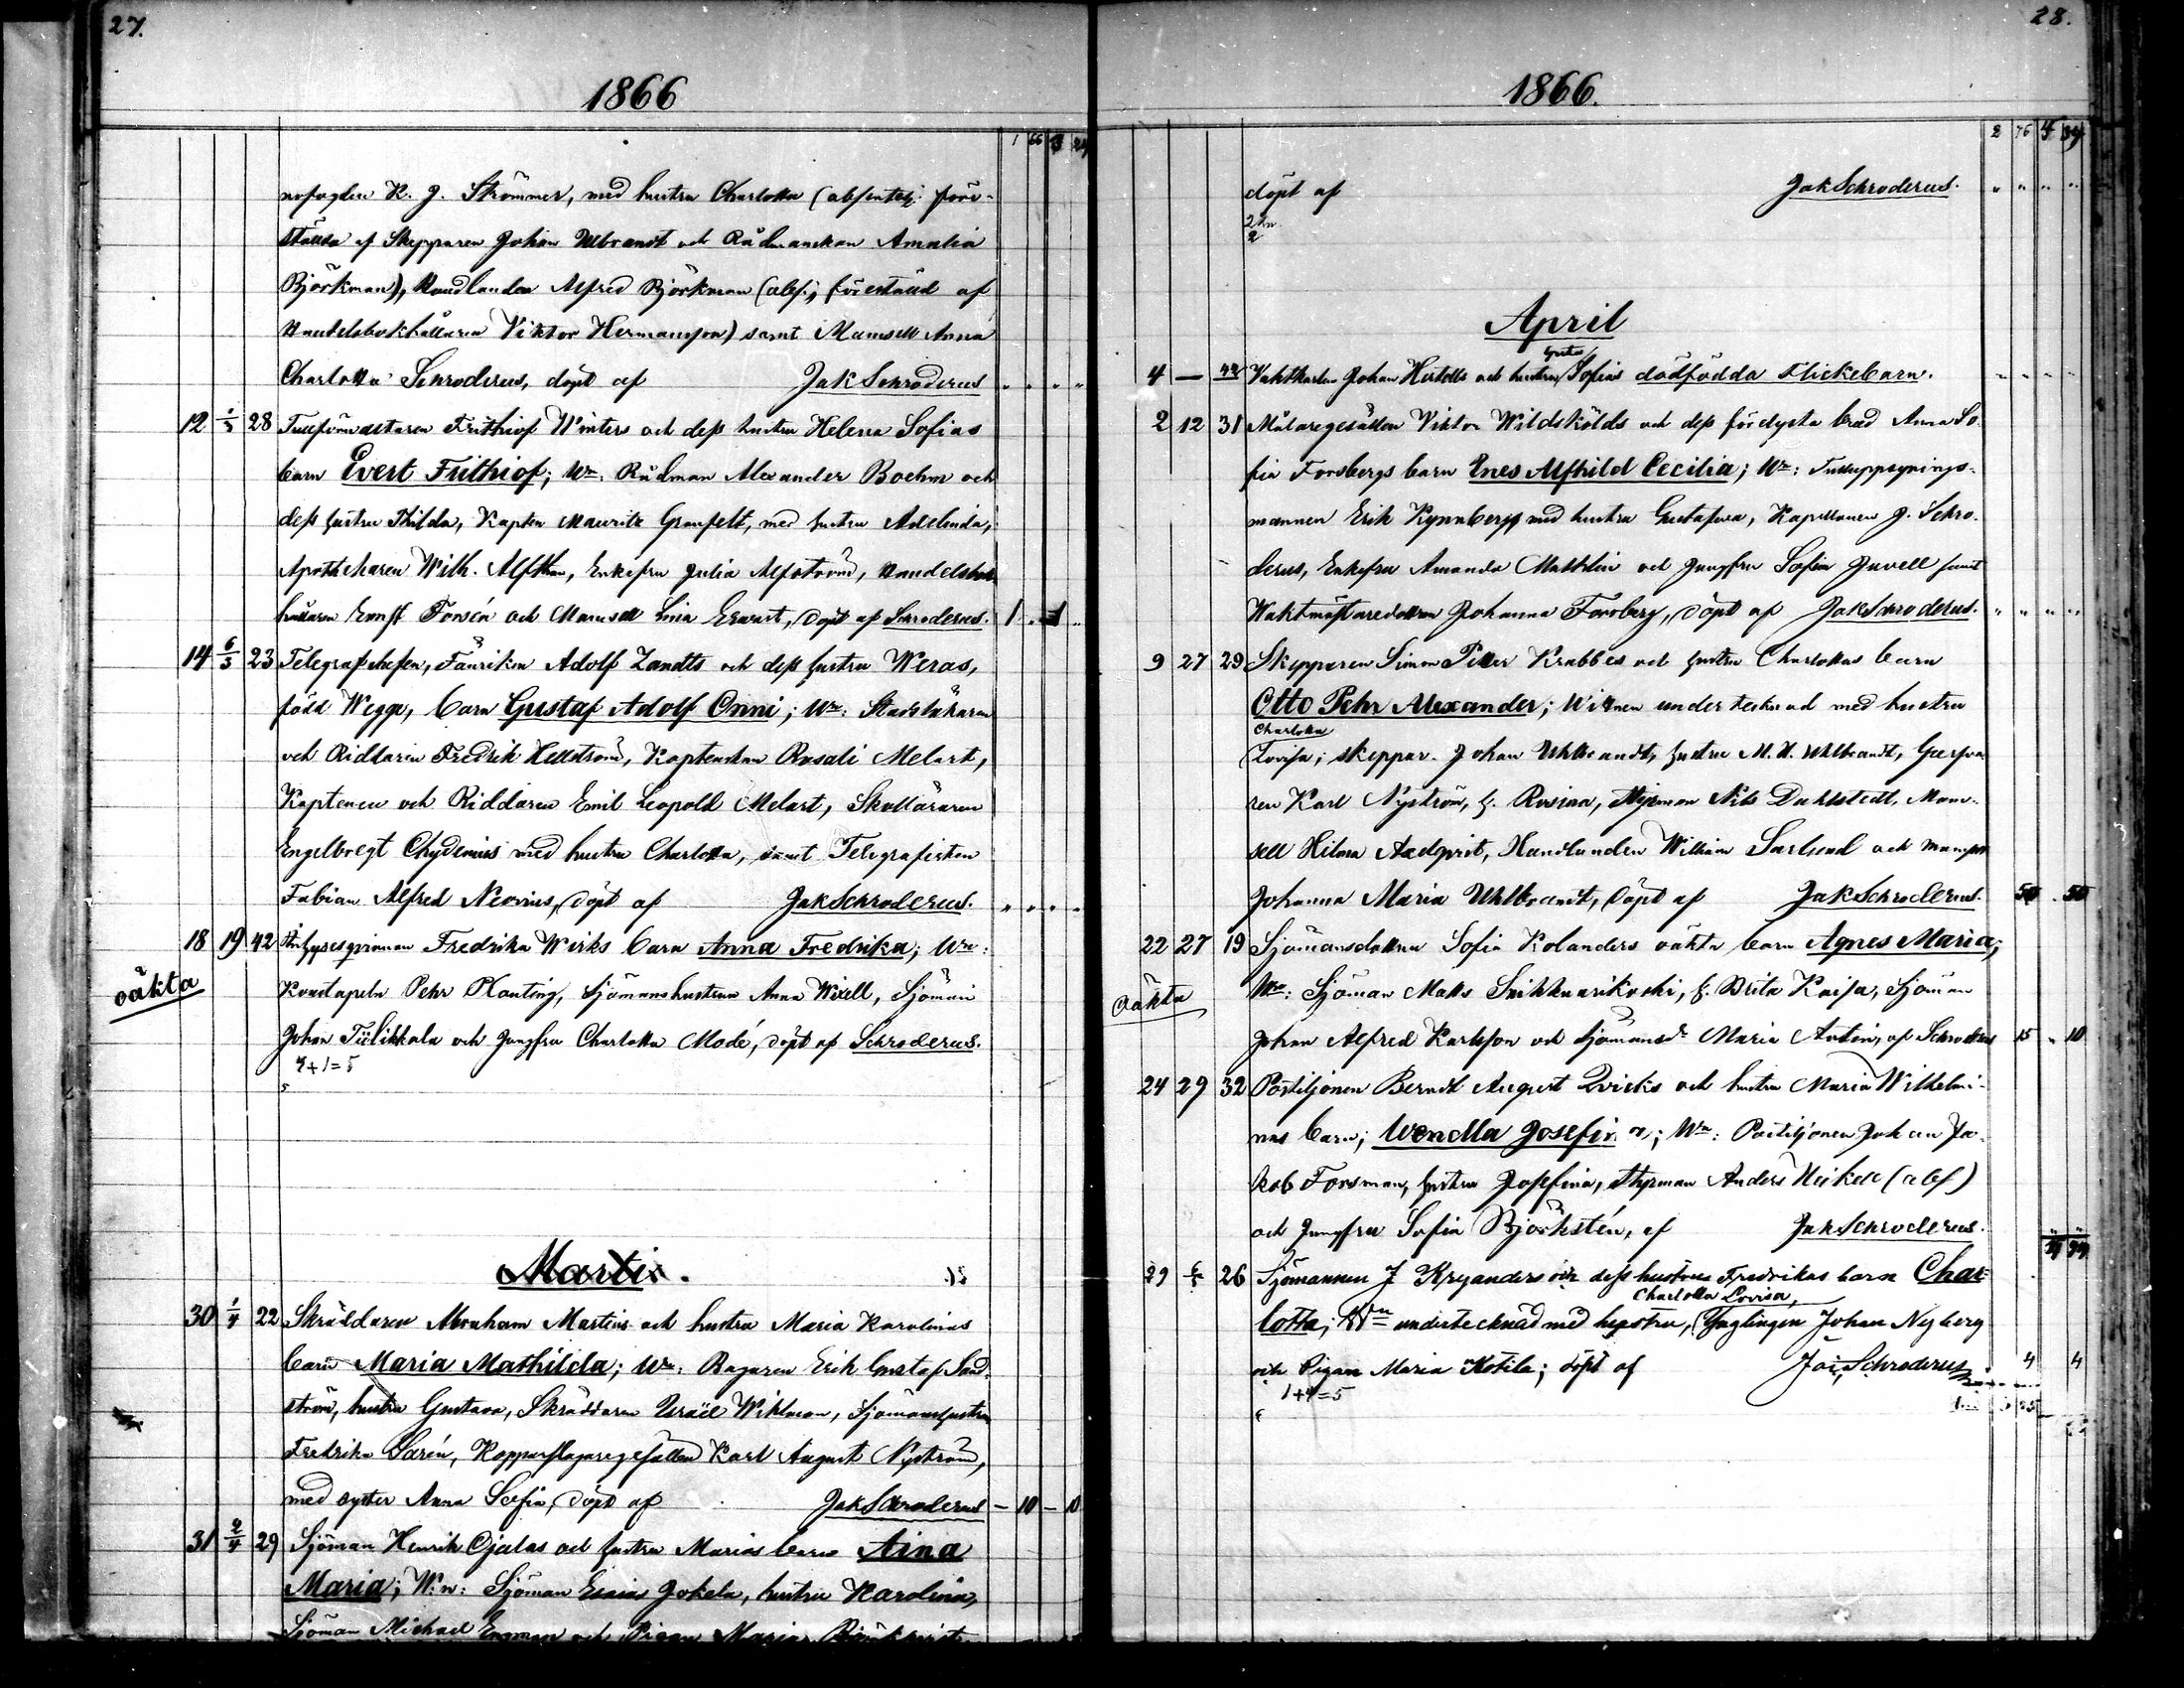 27.
1866
1 66 3 24
K. J. Strömmer, med hustru Charlotta (absent: före-
ställda af Skepparen Johan Uhlbrandt och Rådmanskan Amalia
Björkman), Handlanden Alfred Björkman (abs:, föreställd af
Handelsbokhållaren Viktor Hermansson) samt Mamsell Anna
Charlotta Schroderus, döpt af Jak Schroderus
12 1/3 28 Tullförvaltaren Frithiof Winters och dess hustru Helena Sofias
barn Evert Frithiof; Wn: Rådman Alexander Boehm och
dess hustru Thilda, Kapten Mauritz Granfelt, med hustru Adelinda,
Apothekaren Wilh. Alfthan, Enkefru Julia Alfström, Handelsbok-
hållaren Ernst Forsén och Mamsell Lina Ervart, döpt af Schroderus. 1 . 1 .
14 6/3 23 Telegrafchefen, Fänriken Adolf Zandts och dess hustru Weras,
född Wegge, barn Gustaf Adolf Onni; Wn: Stadsläkaren
och Riddaren Fredrik Hellström, Kaptenskan Rosali Melart,
Kaptenen och Riddaren Emil Leopold Melart, Skolläraren
Engelbregt Chydenius med hustru Charlotta, samt Telegrafisten
Fabian Alfred Neovius, döpt af Jak Schroderus.
18 19 42 Fredrika Wirks barn Anna Fredrika; Wn:
oäkta
Konstapeln Pehr Planting, Sjömanshustrun Anna Wixell, Sjöman
Johan Tiilikkala och Jungfru Charlotta Modé, döpt af Schroderus.
4+1=5
5
Martii.
30 1/4 22 Skräddaren Abraham Martins och hustru Maria Karolinas
barn Maria Mathilda; Wn: Bagaren Erik Gustaf Sand-
ström, hustru Gustava, Skräddaren Israel Wiklman, Sjömanshustrun
Fredrika Sarén, Kopparslagaregesällen Karl August Nyström,
med syster Anna Sofia, döpt af Jak Schroderus – 10 – 10
31 2/4 29 Sjöman Henrik Ojalas och hustru Marias barn Aina
Maria; Wn: Sjöman Esaias Jokela, hustru Karolina,
Sjöman Michael Engman och Pigan Maria
28.
1866.
2 76 4 34
döpt af Jak Schroderus.
2
April
4 — 42 Johan och hustru Sofias dödfödda Flickebarn.
2 12 31 Målaregesällen Viktor Wildskölds och dess förlofvta brud Anna So-
fia Forsbergs barn Ines Alfhild Cecilia; Wn: Tulluppsynings-
mannen Erik Kynnberg med hustru Gustafva, Kapellanen J. Schro-
derus, Enkefru Amanda Mathlin och Jungfru Sofia Juvell samt
Waktmästaredottren Johanna Forsberg, döpt af Jak Schroderus.
9 27 29 Skepparen Simon Petter Krabbes och hustru Charlottas barn
Otto Pehr Alexander; Witnen undertecknad med hustru
Charlotta
Lovisa; skeppar. Johan Uhlbrandt, hustru M. H. Uhlbrandt, Garfva-
ren Karl Nyström, h. Rosina, Styrman Nils Dahlstedt, Mam-
sell Hilma Axelqvist, Handlanden William Sarlund och mamsell
Johanna Maria Uhlbrandt, döpt af Jak Schroderus. 50 . 50
22 27 19 Sjömansdottren Sofia Kolanders oäkta barn Agnes Maria;
Oäkta
Wn: Sjöman Matts Snikkarikoski, h. Brita Kaisa, Sjöman
Johan Alfred Karlsson och Sjömansd: Maria Antin, af Schroderus 15 . 10
24 29 32 Postiljonen Berndt August Qvicks och hustru Maria Wilhelmi-
nas barn; Wendla Josefina; Wn: Postiljonen Johan Ja-
kob Forsman, hustru Josefina, Styrman Anders Heikell (abs)
och Jungfru Sofia Björkstén, af Jak Schroderus.
29 26 Sjömannen J Kryanders och dess hustrus Fredrikas barn Char-
Charlotta Lovisa,
lotta; Wn undertecknad med hustru, Ynglingen Johan Nyberg
och Pigan Maria Kotila; döpt af Schroderus 4 4
1+4=5